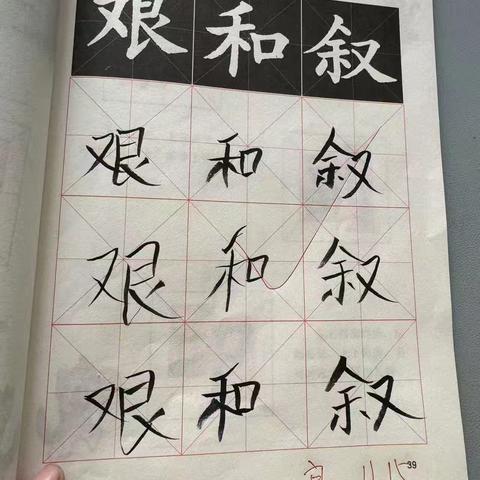 艰和叙
艰和叙
艰和叙
艰和叙
11.15
39